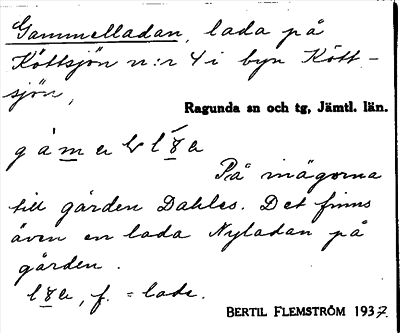 Gammelladan, lada på
Köttsjön n:r 4 i byn Kött-
sjön,
Ragunda sn och tg, Jämtl. län.
På inägorna
till gården Dahles. Det finns
även en lada Nyladan på
gården.
f. = lada.
BERTIL FLEMSTRÖM 1937.